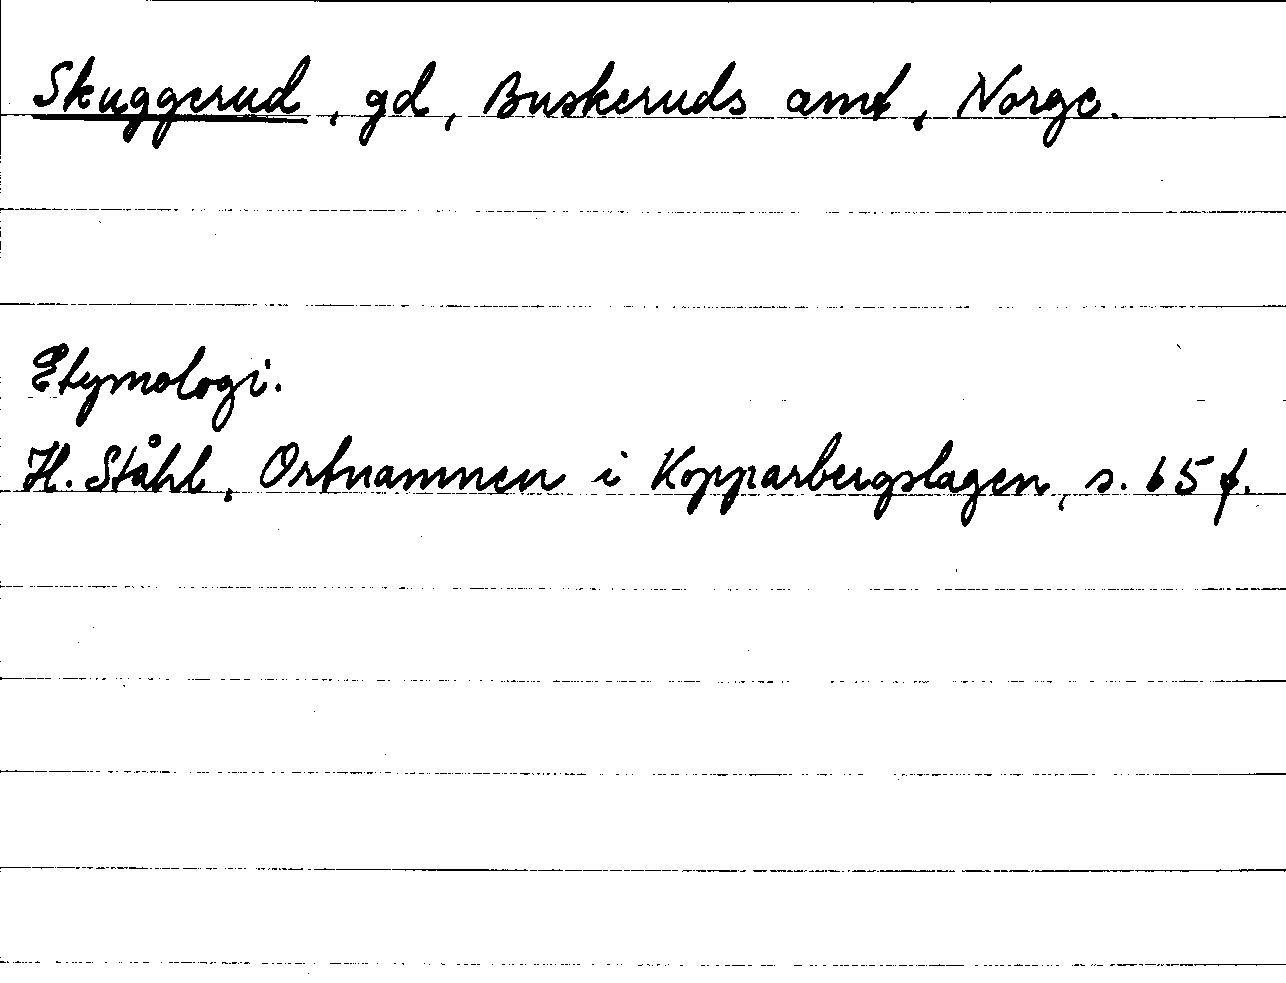 Skuggerud, gd, Buskeruds amt, Norge.
Etymologi.
H. Ståhl, Ortnamnen i Kopparbergslagen, s. 65 f.